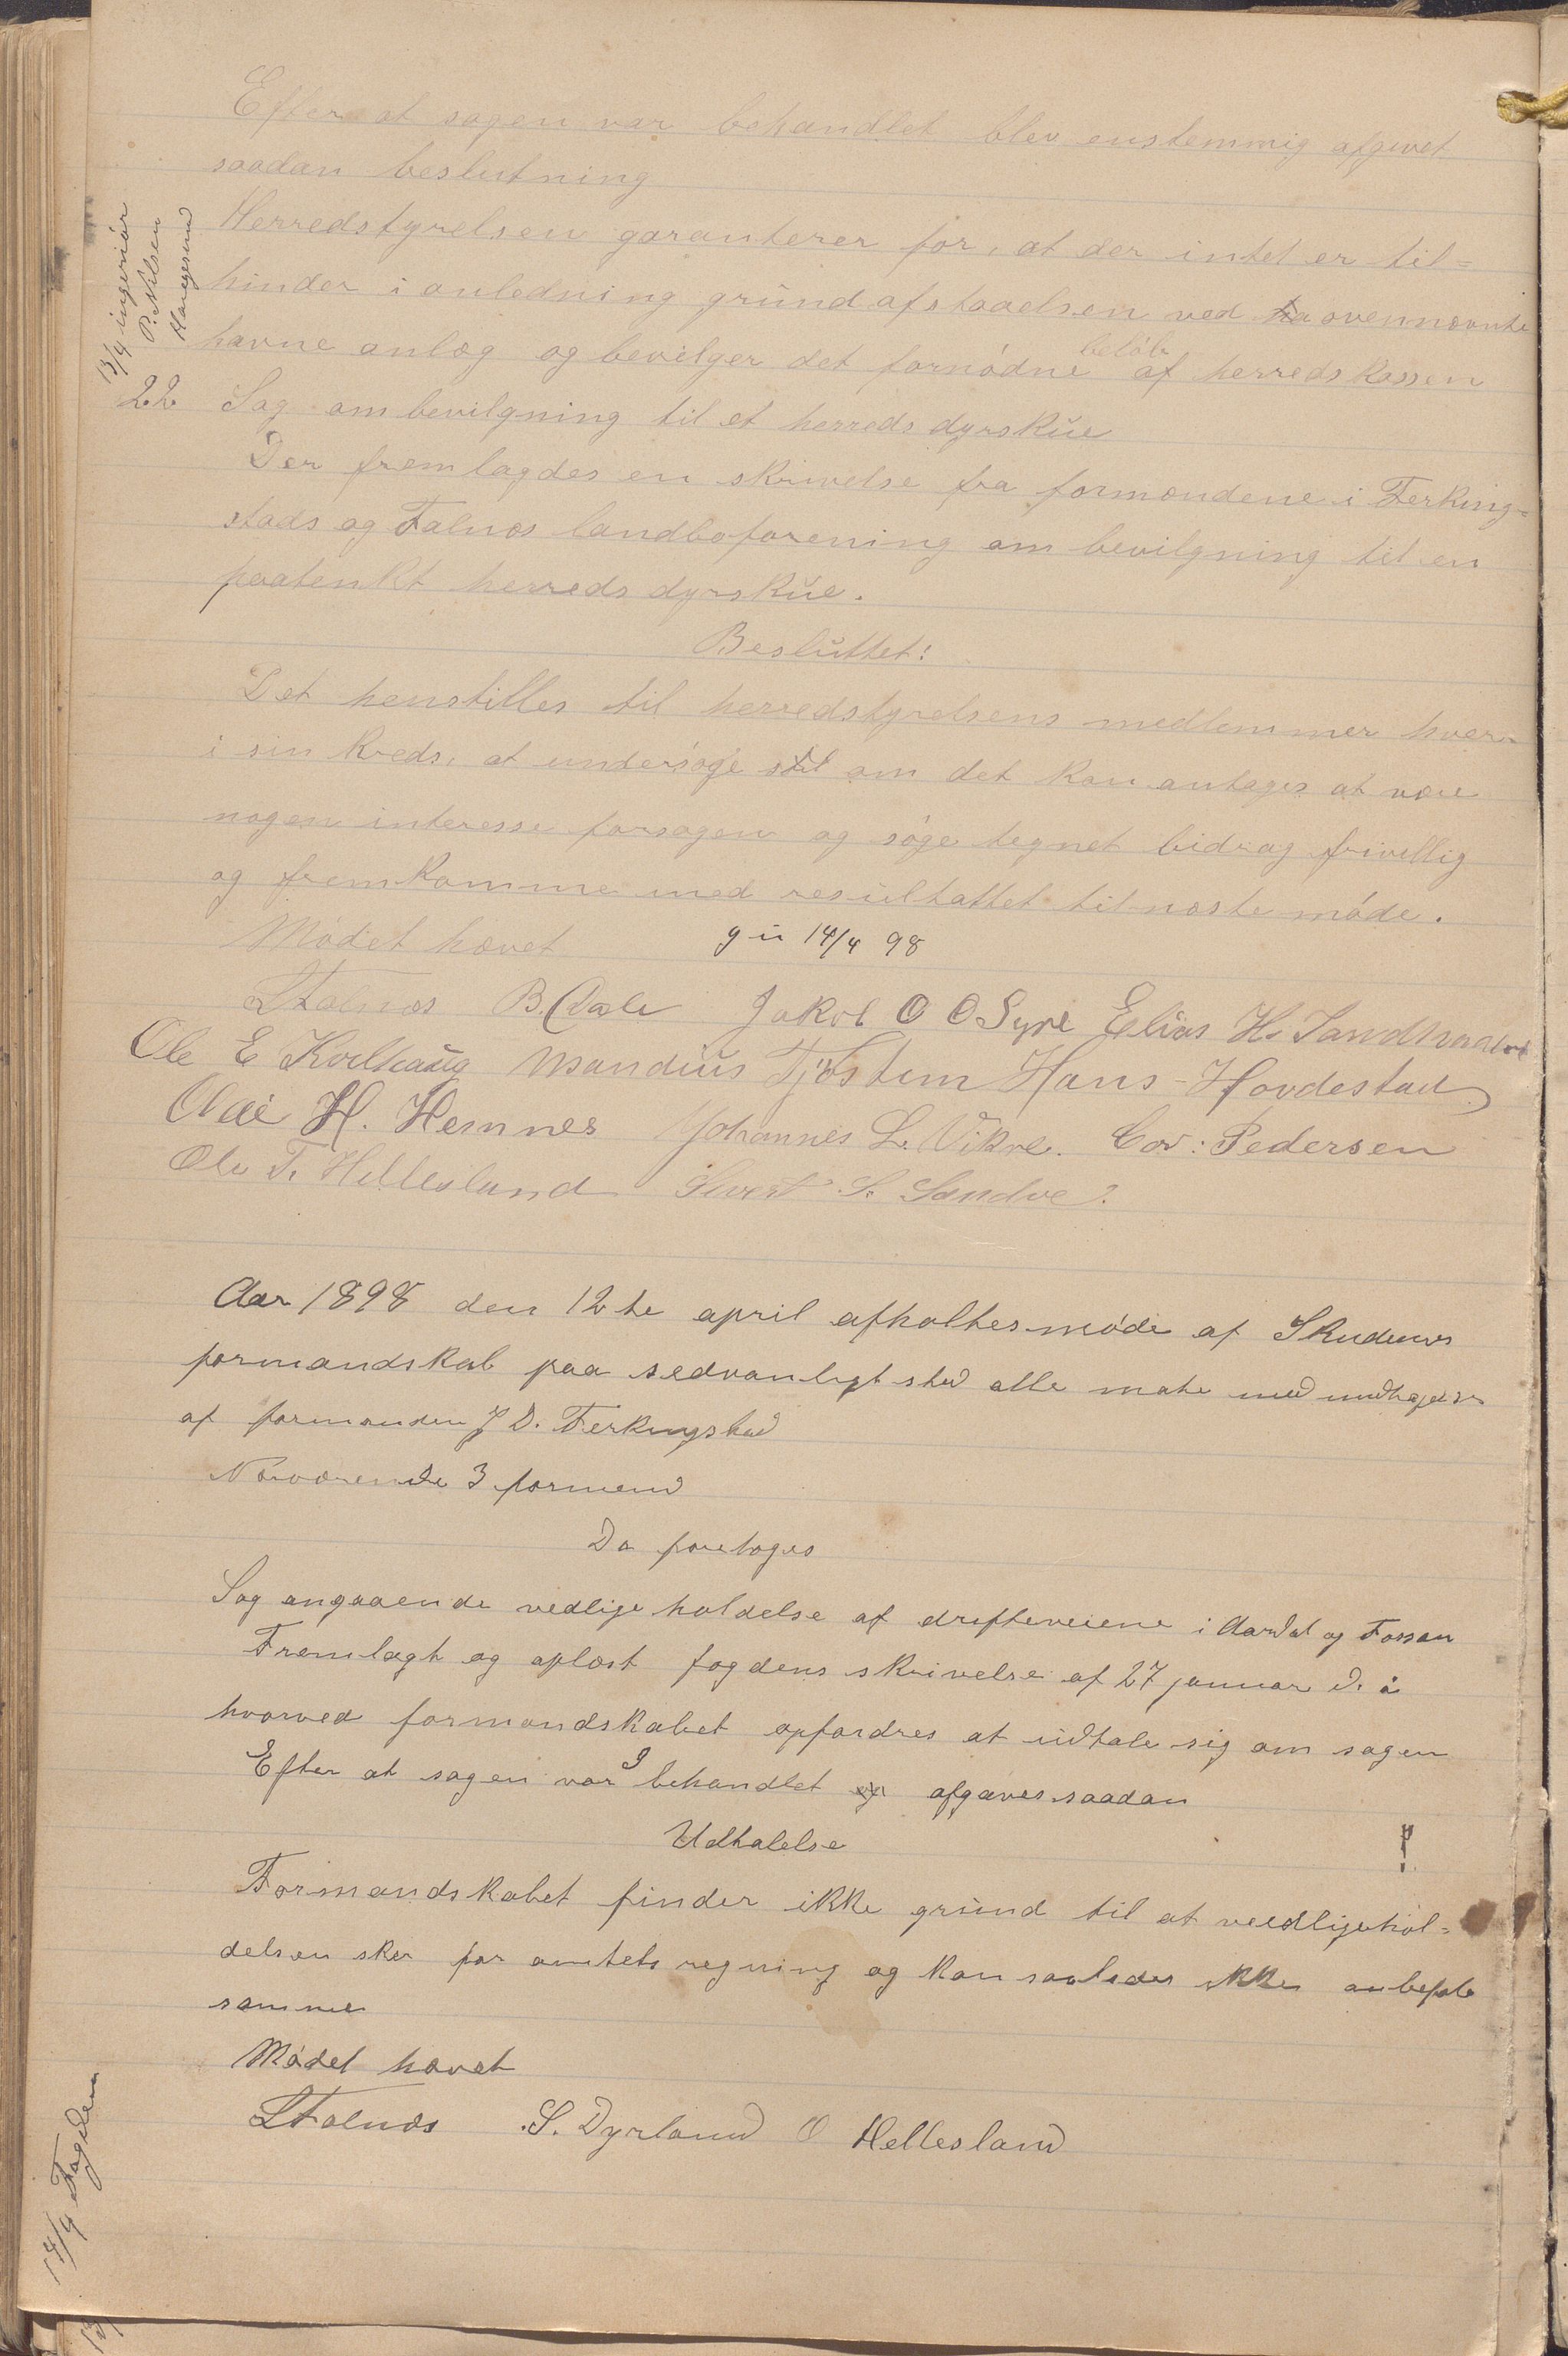 Efter at sagen var behandlet blev enstemmig afgivet
saadan beslutning
Herredstyrelsen garanterer for, at der intet er til=
hinder i anledning grundafstaaelsen ved ovennævnte
havne anlæg og bevilger det fornødne beløb af herredskassen
13/4 ingeniør
P. Nilsen
Haugesund
22 Sag om bevilgning til et herreds dyrskue
Der fremlagdes en skrivelse fra formændene i Ferking=
stads og Falnes landboforening om bevilgning til en
paatenkt herreds dyrskue.
Besluttet:
Det henstilles til herredstyrelsens medlemmer hver
i sin kreds, at undersøge om det kan antages at være
nogen interesse for sagen og søge tegnet bidrag frivillig
og fremkomme med resultattet til næste møde.
Mødet hævet
14/4 98
L Falnæs B. Dale Jakob O O Syre Elias H. Sandhaaland
Ole E Kvilhaug Mandius Tjøstem Hans Hovdestad
Ole H. Hemnes Johannes L. Vikre. Cor: Pedersen
Ole T. Hellesland Sivert S. Sandve
Aar 1898 den 12te april afholtes møde af Skudenes
formandskab paa sedvanligt sted alle møte med undtagelse
af formanden J D. Ferkingstad
Nærværende 3 formænd
Da foretoges
Sag angaaende vedlige holdelse af drifteveiene i Aardal og Fossan
Fremlagt og oplæst fogdens skrivelse af 27 januar d. å
hvorved formandskabet opfordres at udtale sig om sagen
Efter at sagen var behandlet afgaves saadan
Udtalelse
Formandskabet finder ikke grund til at veedligehol=
delsen sker for amtets regning og kan saaledes ikke anbefale
samme
Mødet hævet
L Falnæs S. Dyrland O Hellesland
14/4 Fogden